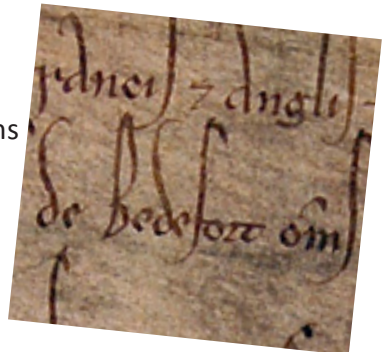 ns
ranciſ ⁊ angliſ
de bedefort om̅ſ